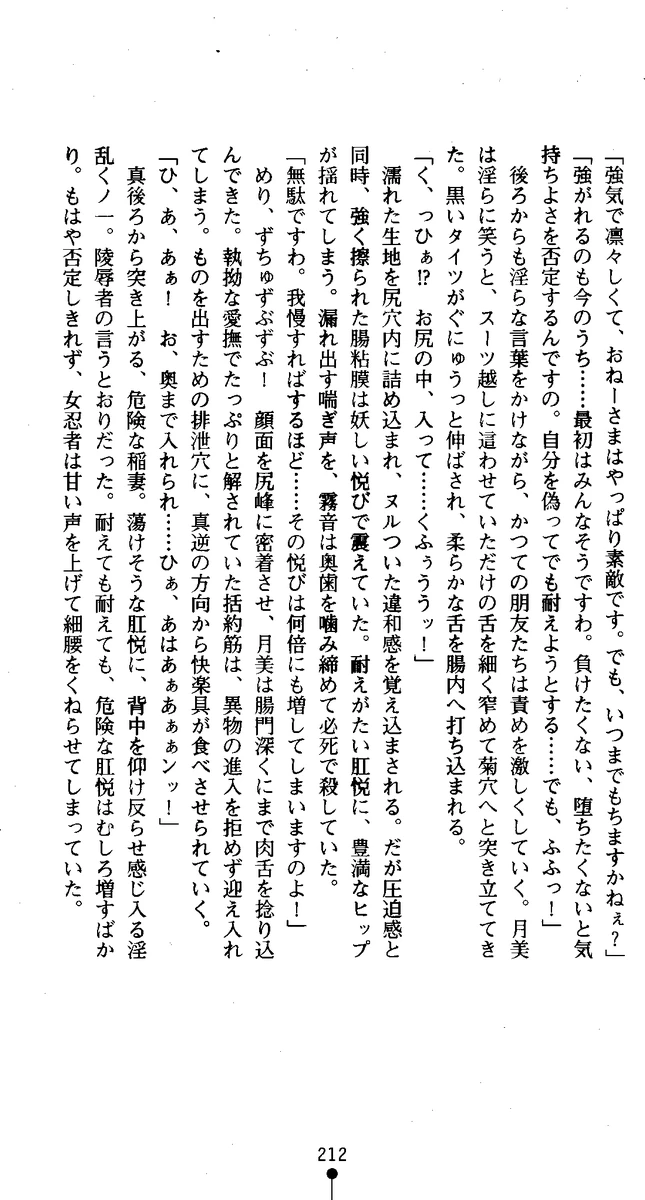 「強気で凛々しくて、おねーさまはやっぱり素敵です。でも、いつまでもちますかねぇ？」
「強がれるのも今のうち……最初はみんなそうですわ。負けたくない、堕ちたくないと気
持ちよさを否定するんですの。自分を偽ってでも耐えようとする……でも、ふふっ！」
　後ろからも淫らな言葉をかけながら、かつての朋友たちは責めを激しくしていく。月美
は淫らに笑うと、スーツ越しに這わせていただけの舌を細く窄めて菊穴へと突き立ててき
た。黒いタイツがぐにゅうっと伸ばされ、柔らかな舌を腸内へ打ち込まれる。
「く、っひぁ!?　お尻の中、入って……くふぅううッ！」
　濡れた生地を尻穴内に詰め込まれ、ヌルついた違和感を覚え込まされる。だが圧迫感と
同時、強く擦られた腸粘膜は妖しい悦びで震えていた。耐えがたい肛悦に、豊満なヒップ
が揺れてしまう。漏れ出す喘ぎ声を、霧音は奥歯を噛み締めて必死で殺していた。
「無駄ですわ。我慢すればするほど……その悦びは何倍にも増してしまいますのよ！」
　めり、ずちゅずぶずぶ！　顔面を尻峰に密着させ、月美は腸門深くにまで肉舌を捻り込
んできた。執拗な愛撫でたっぷりと解されていた括約筋は、異物の進入を拒めず迎え入れ
てしまう。ものを出すための排泄穴に、真逆の方向から快楽具が食べさせられていく。
「ひ、あ、あぁ！　お、奥まで入れられ……ひぁ、あはあぁあぁぁンッ！」
　真後ろから突き上がる、危険な稲妻。蕩けそうな肛悦に、背中を仰け反らせ感じ入る淫
乱くノ一。陵辱者の言うとおりだった。耐えても耐えても、危険な肛悦はむしろ増すばか
り。もはや否定しきれず、女忍者は甘い声を上げて細腰をくねらせてしまっていた。
212